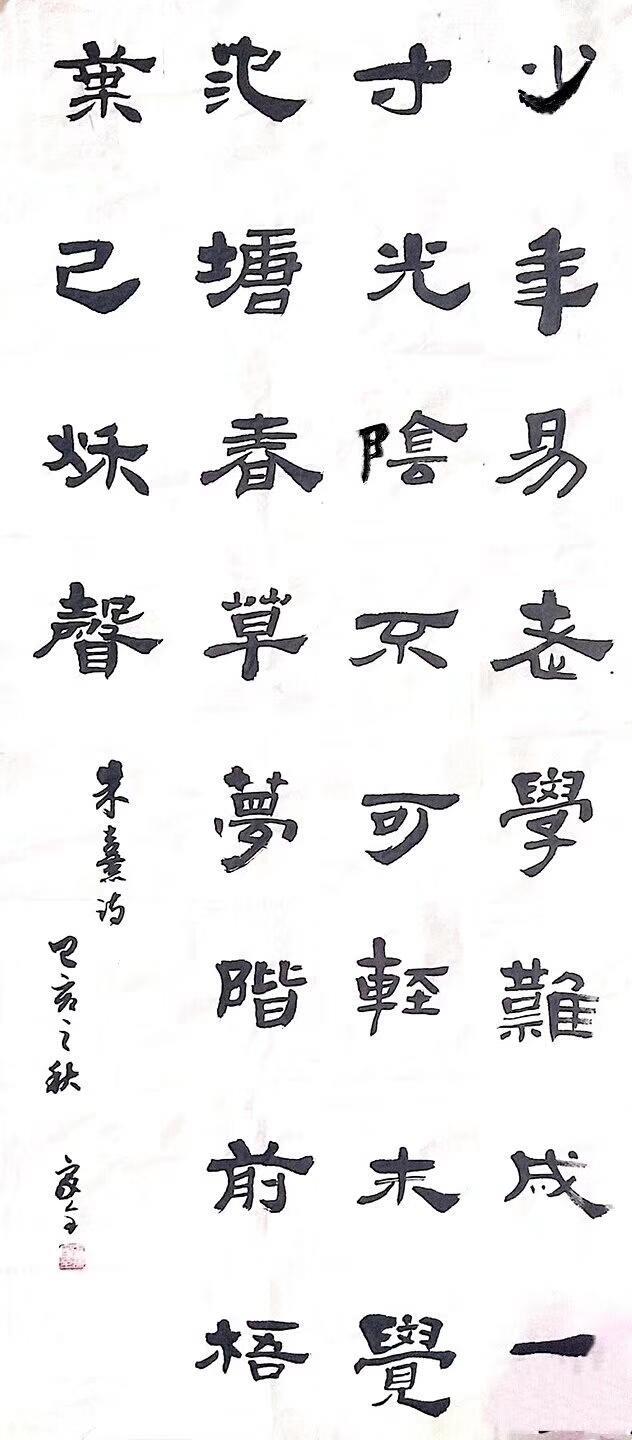 少年易老學難成一
寸光陰不可輕未覺
池塘春草夢階前梧
葉已秌聲
朱熹詩
己亥之秋